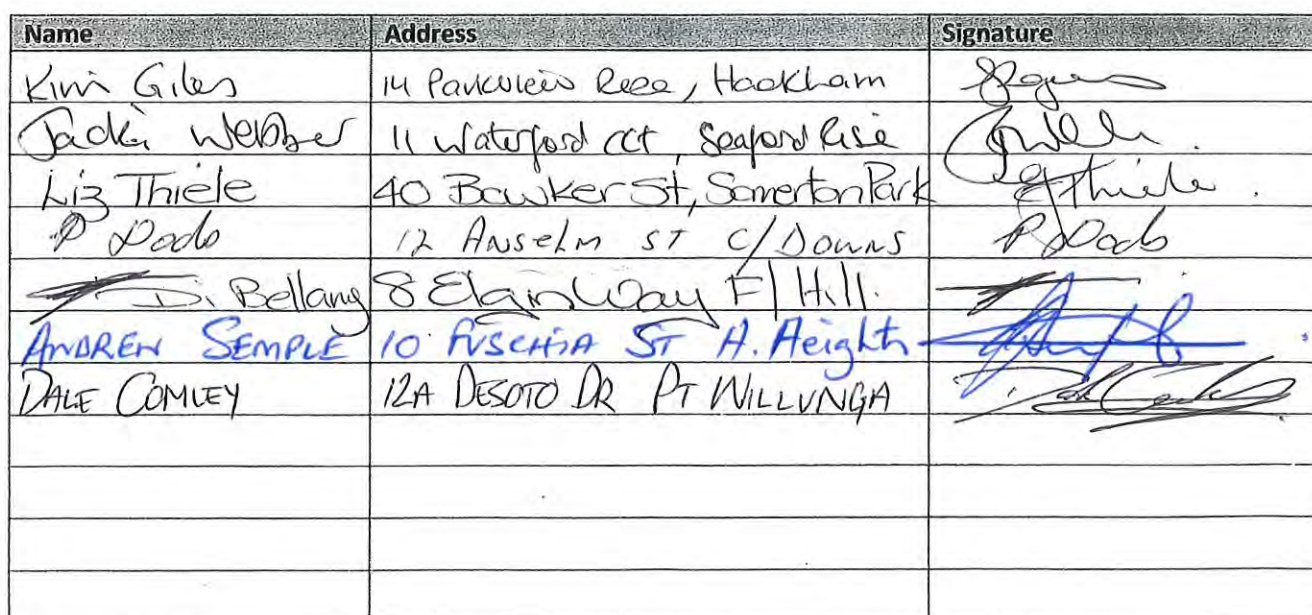 Name Address Signature
Kim Giles 14 Parkview Rise, Hackham
Jacki Webber 11 Waterford cct, Seaford Rise
Liz Thiele 40 Bowker St, Somerton Park EThiele.
P Dodo 12 Anselm ST C/Downs P Dodo
Di Bellany 8 Elgin Way F/Hill.
ANDREW SEMPLE 10 FUSCHIA ST A. Heights
DALE COMLEY 12A DESOTO DR PT WILLUNGA